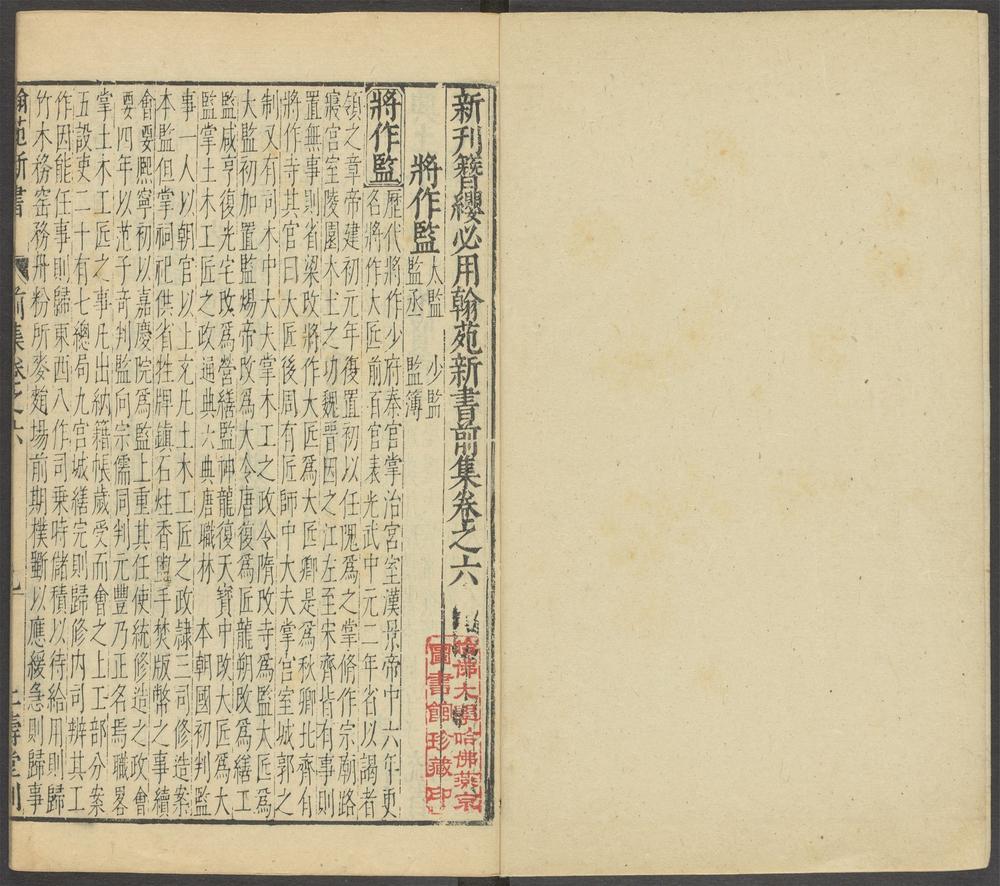 新刊簪纓必用翰苑新書前集卷之六
將作監 大監 少監
監丞 監簿
將作監 歷代將作少府奉官掌治宮室漢景帝中六年更
名將作大匠前百官表光武中元二年省以謁者
領之章帝建初元年復置初以任隗爲之掌脩作宗廟路
寢宮室陵園木土之功魏晉因之江左至宋齊皆有事則
置無事則省梁改將作大匠爲大匠卿是爲秋卿北齊有
將作寺其官曰大匠後周有匠師中大夫掌宮室城郭之
制又有司木中大夫掌木工之政令隋改寺爲監大匠爲
大監初加置監煬帝改爲大令唐復爲匠龍朔改爲繕工
監咸亨復光宅改爲營繕監神龍復天寶中改大匠爲大
監掌土木工匠之政通典六典唐職林 本朝國初判監
事一人以朝官以上充凡土木工匠之政隷三司修造案
本監但掌祠祀供省牲牌鎮石炷香盥手焚版幣之事續
會要熈寧初以嘉慶院爲監上重其任使統修造之政會
要四年以范子奇判監向宗儒同判元豐乃正名焉職畧
掌土木工匠之事凡出納籍帳歲受而會之上工部分案
五設吏二十有七總局九宮城繕完則歸修內司辨其工
作因能任事則歸東西八作司乗時儲積以待給用則歸
竹木務窑務丹粉所麥䴬場前期樸斵以應緩急則歸事
翰苑新書 前集卷之六 仁壽堂刊
哈佛大學哈佛燕京
圖書館珍藏印